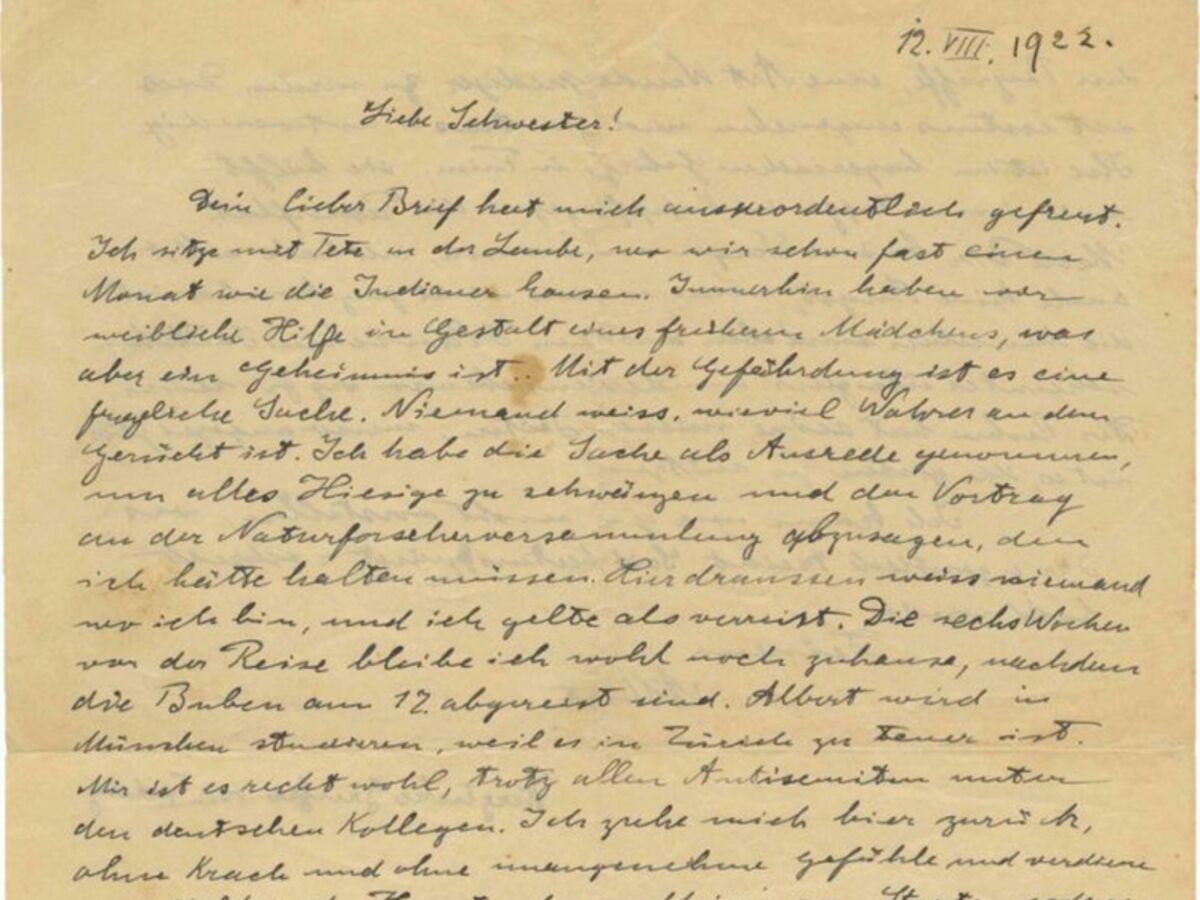 12. VIII. 1922.
Liebe Schwester!
Dein lieber Brief hat mich ausserordentlich gefreut.
Ich sitze mit Tete in der Laube, wo wir schon fast einen
Monat wie die Indianer hausen. Immerhin haben wir
weibliche Hilfe in Gestalt eines früheren Mädchens, was
aber ein Geheimnis ist.. Mit der Gefährdung ist es eine
fragliche Sache. Niemand weiss, wieviel Wahres an dem
Gerücht ist. Ich habe die Sache als Ausrede genommen,
um alles Hiesige zu schwänzen und den Vortrag
an der Naturforscherversammlung abzusagen, den
ich hätte halten müssen. Hier draussen weiss niemand
wo ich bin, und ich gelte als verreist. Die sechs Wochen
vor der Reise bleibe ich wohl noch zuhause, nachdem
die Buben am 17. abgereist sind. Albert wird in
München studieren, weil es in Zürich zu teuer ist.
Mir ist es recht wohl, trotz allen Antisemiten unter
den deutschen Kollegen. Ich ziehe mich hier zurück,
ohne Krach und ohne unangenehme Gefühle und verdiene